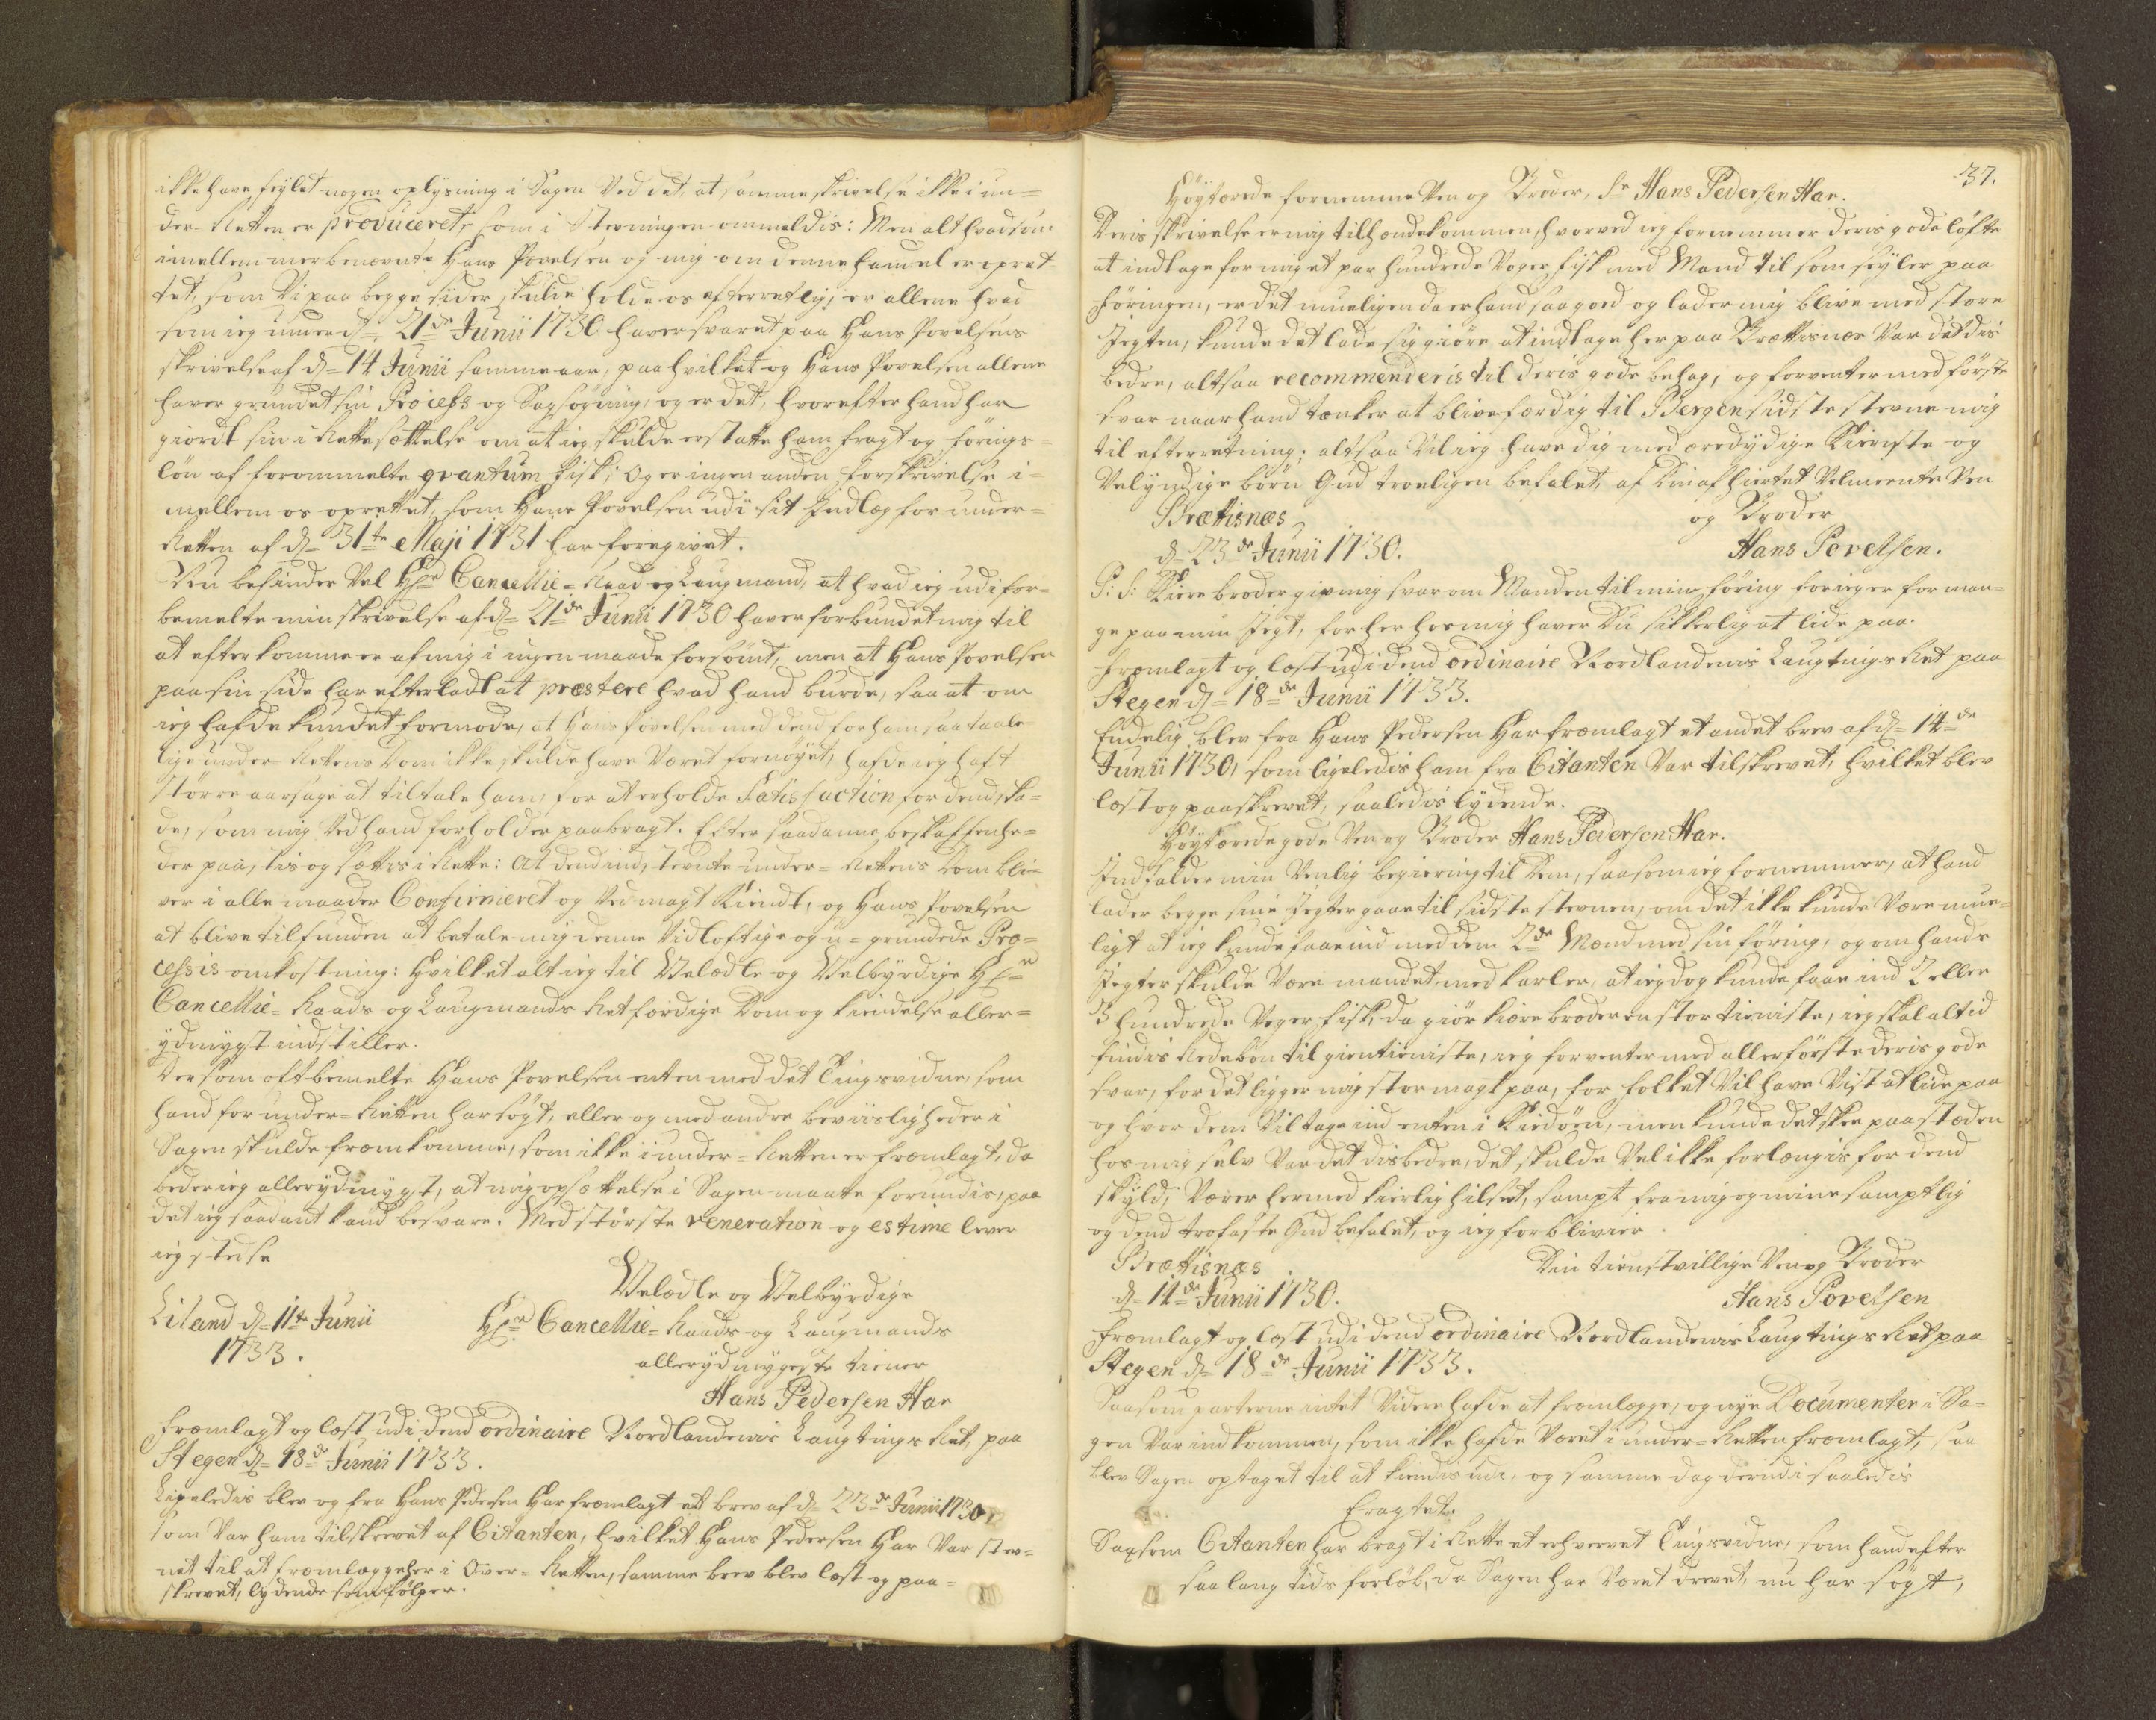 ikke have feylet nogen oplysning i Sagen ved det, at samme skrivelse ikke i un=
der-Retten er produceret, som i Stevningen ommeldis: Men alt hvad som
imellem merbenævnte Hans Povelsen og mig om denne handel er opret=
tet, som vi paa begge sider skulde holde os efterretlig, er allene hvad
som ieg under d: 21de Junii 1730 haver svaret paa Hans Povelsens
skrivelse af d= 14 Junii samme aar, paa hvilket og Hans Povelsen allene
haver grundet sin Process og Sagsøgning, og er det, hvorefter hand har
giordt sin i Rettesættelse om at ieg skulde erstatte ham fragt og førings=
løn af forommelte qvantum fisk; Og er ingen anden forskrivelse i=
mellem os oprettet, som Hans Povelsen udi sit Indlæg for under=
Retten af d= 31te Maji 1731 har foregivet.
Nu befinder Vel Hr Cancellie=Raad og Laugmand, at hvad ieg udi for=
bemelte min skrivelse af d= 21de Junii 1730 haver forbundet mig til
at efterkomme er af mig i ingen maade forsømt, men at Hans Povelsen
paa sin side har efterladt at præstere hvad hand burde, saa at om
ieg hafde kundet formode, at Hans Povelsen med dend for ham saa taale=
lige under=Rettens Dom ikke skulde have været fornøyet, hafde ieg haft
større aarsage at tiltale ham, for at erholde Satisfaction for dend ska=
de, som mig ved hand forholder paabragt. Efter saadanne beskaffenhe=
der paastis og sættis i Rette: At dend indstevnte under=Rettens Dom bli=
ver i alle maader Confirmeret og ved magt kiendt, og Hans Povelsen
at blive tilfunden at betale mig denne vidløftige og u=grundede Pro=
cessis omkostning: Hvilket alt ieg til Velædle og Velbyrdige Hr
Cancellie=Raads og Laugmands Retfærdige Dom og kiendelse aller=
ydmygst indstiller.
Dersom oftbemelte Hans Povelsen enten med det Tingsvidne, som
hand for under=Retten har søgt, eller og med andre beviisligheder i
Sagen skulde fremkomme, som ikke i under=Retten er fremlagt, da
beder ieg allerydmygst, at mig opsættelse i Sagen maatte forundis, paa
det ieg saadant kand besvare. Med største veneration og estime lever
ieg stedse
Velædle og Velbyrdige
Liland d= 11te Junii Hr Cancellie=Raads og Laugmands
1733. allerydmygeste tiener
Hans Pedersen Har
Fremlagt og læst udi dend ordinaire Nordlandenis Laugtings Ret, paa
Stegen d= 18de Junii 1733.
Ligeledis blev og fra Hans Pedersen Har fremlagt et brev af d= 23de Junii 1730,
som var ham tilskrevet af Citanten, hvilket Hans Pedersen Har var stev=
net til at fremlægge her i Over=Retten, samme brev blev læst og paa=
skrevet, lydende som følger.
37.
Høytærede fornemme Ven og Broder, Sr Hans Pedersen Har.
Deris skrivelse er mig tilhændekommen, hvorved ieg fornemmer deris gode løfte
at indtage for mig et par hundrede Voger fisk med Mand til som seyler paa
føringen, er det mueligen da er hand saa goed og lader mig blive med store
Jegten, kunde det lade sig giøre at indtage her paa Brættisnæs var det dis
bedre, altsaa recommenderis til deris gode behag, og forventer med første
svar naar hand tenker at blive færdig til Bergen sidste stevne mig
til efterretning: altsaa vil ieg have dig med æredydige Kiereste og
Velyndige børn Gud troeligen befalet, af Din afhiertet Velmeente Ven
Brættisnæs og Broder
d= 23de Junii 1730. Hans Povelsen.
P: S: Kiere broder giv mig svar om Manden til min føring for ieg er for man=
ge paa min Jegt, for her hos mig haver Du sikkerlig at lide paa.
Fremlagt og læst udi dend ordinaire Nordlandenis Laugtings Ret paa
Stegen d= 18de Junii 1733.
Endelig blev fra Hans Pedersen Har fremlagt et andet brev af d= 14de
Junii 1730, som ligeledis ham fra Citanten var tilskrevet, hvilket blev
læst og paaskrevet, saaledis lydende.
Høytærede gode Ven og Broder Hans Pedersen Har.
Indfalder min Venlig begiering til Dem, saasom ieg fornemmer, at hand
lader begge sine Jegter gaae til sidste stevnen, om det ikke kunde være mue=
ligt at ieg kunde faae ind med dem 2de Mænd med sin føring, og om hands
Jegter skulde være mandet med karler, at ieg dog kunde faae ind 2 eller
3 hundrede Voger fisk, da giør kiære broder en stor tieniste, ieg skal altid
findis Redebon til gientieniste, ieg forventer med allerførste deris gode
svar, for det ligger mig stor magt paa, for folket vil have vist at lide paa
og hvor dem vil tage ind enten i Kiedøen, men kunde det skee paa stæden
hos mig selv var det dis bedre, det skulde vel ikke forlængis for dend
skyld; Værer hermed kierlig hilset, sampt fra mig og mine samptlig
og dend trofaste Gud befalet, og ieg forblivier.
Brættisnæs Din tienstvillige Ven og Broder
d= 14de Junii 1730. Hans Povelsen
Fremlagt og læst udi dend ordinaire Nordlandenis Laugtings Ret paa
Stegen d= 18de Junii 1733.
Saasom parterne intet videre hafde at fremlægge, og nye Documenter i Sa=
gen var indkommen, som ikke hafde været i under=Retten fremlagt, saa
blev Sagen optaget til at kiendis udi, og samme dag derudi saaledis
Eragtet.
Saasom Citanten har bragt i Rette et erhvervet Tingsvidne, som hand efter
saa lang tids forløb, da Sagen har været drevet, nu har søgt,